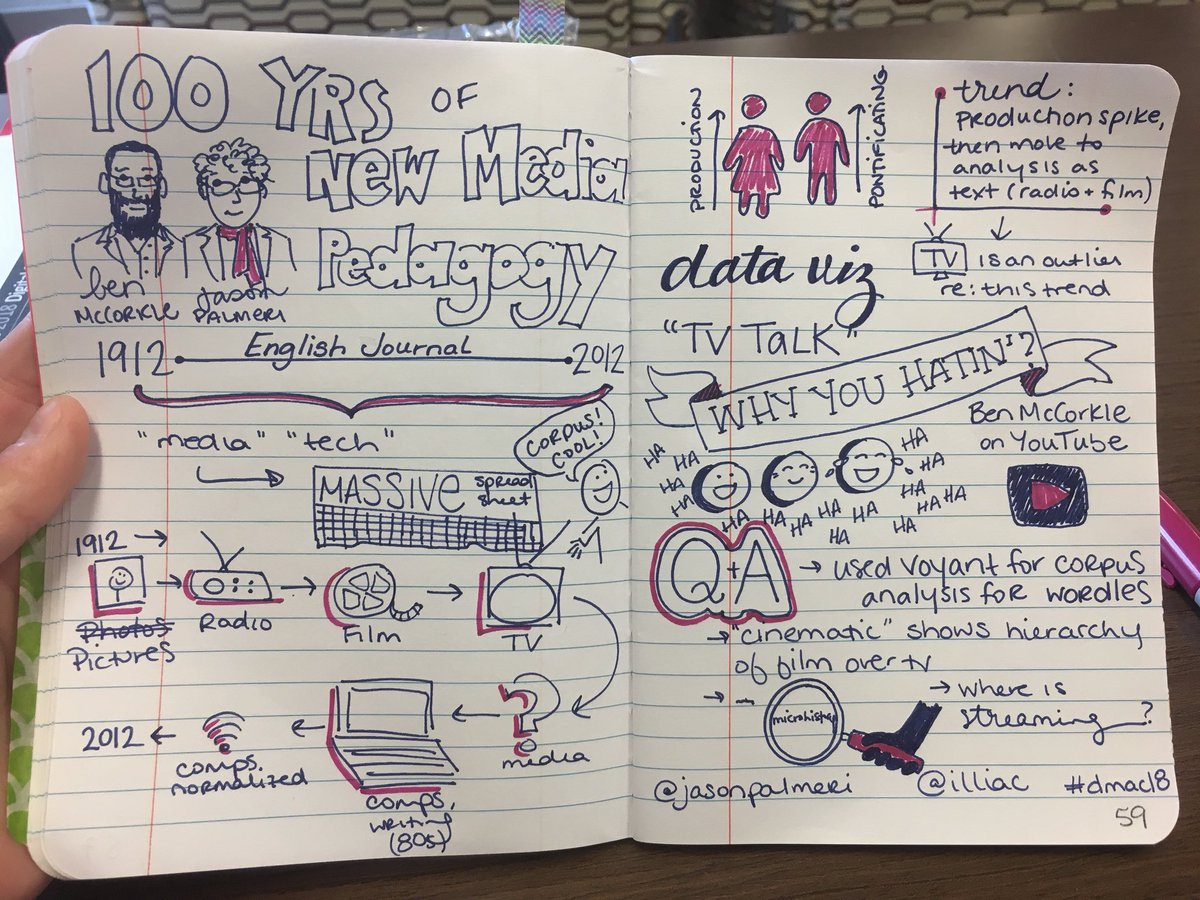 100 YRS OF
New Media
Pedagogy
ben
McCORKLE
Jason
PALMERI
1912 English Journal 2012
"media" "tech"
CORPUS!
COOL!
MASSIVE spread
sheet
1912
Photos
Pictures
Radio
Film
TV
media
comps,
writing
(80s)
comps.
normalized
2012
PRODUCTION
PONTIFICATING
trend:
PRODUCTION SPIKE,
then move to
analysis as
text (radio + film)
TV is an outlier
re: this trend
data viz
"TV TALK"
WHY YOU HATIN'?
Ben McCorkle
on YouTube
HA HA HA HA HA HA HA HA HA HA HA HA HA HA HA HA
Q+A
used voyant for corpus
analysis for wordles
"cinematic" shows hierarchy
of film over tv
microhistory
where is
streaming?
@jasonpalmeri @illiac #dmac18
59
2018 Digital